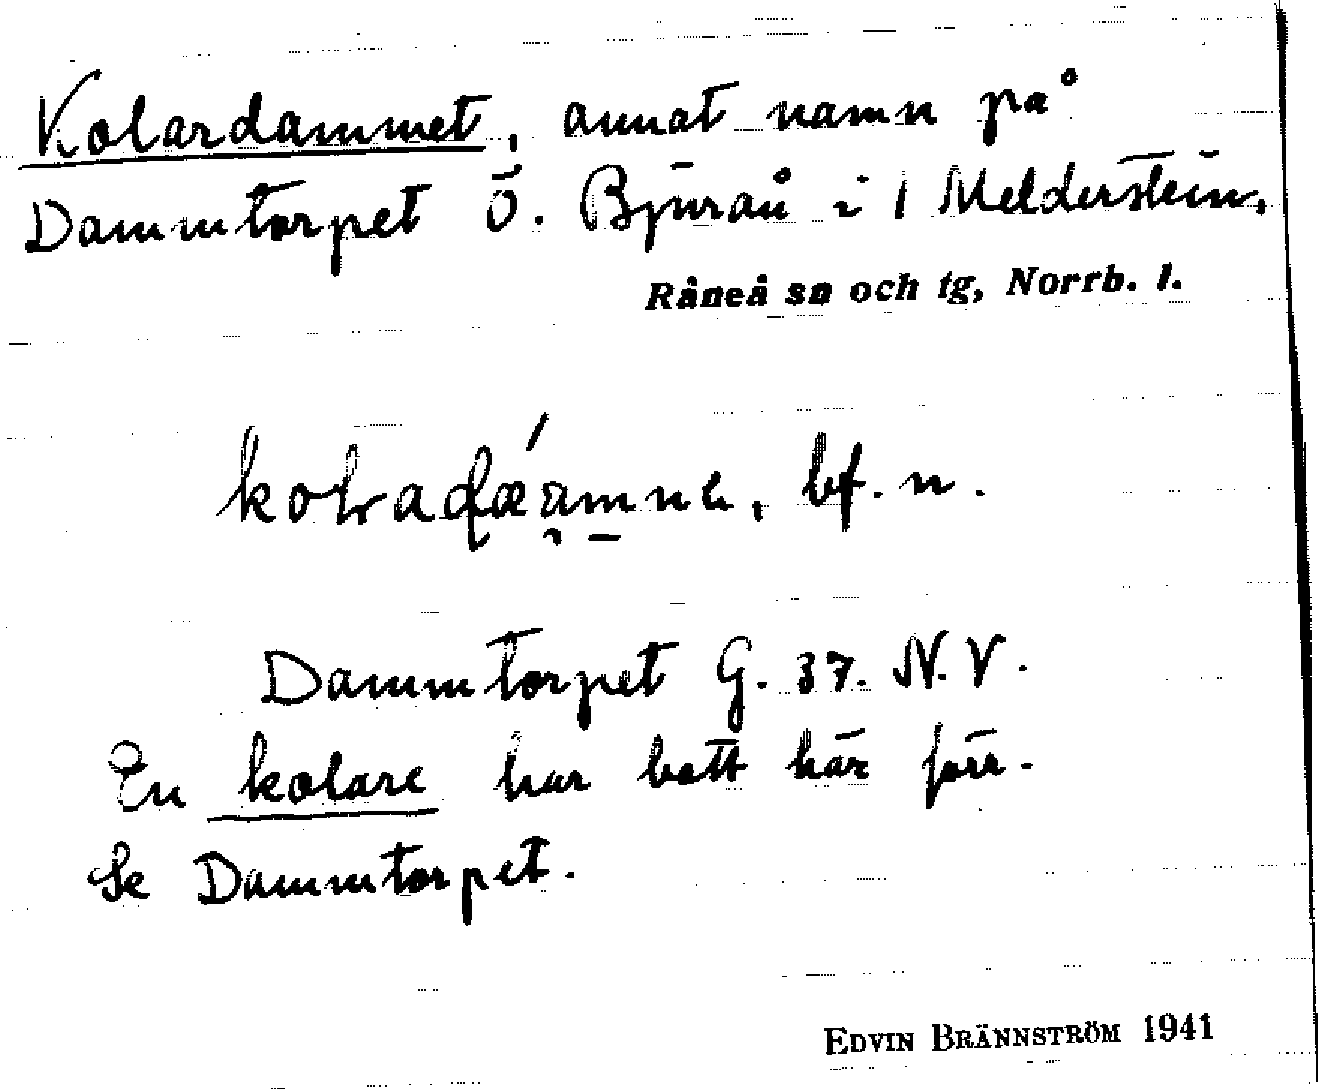 Kolardammet, annat namn på
Dammtorpet Ö. Bjurån i 1 Melderstein.
Råneå sn och tg, Norrb. l.
bf. n.
Dammtorpet G. 37. N.V.
En kolare har bott här förr.
Se Dammtorpet.
EDVIN BRÄNNSTRÖM 1941